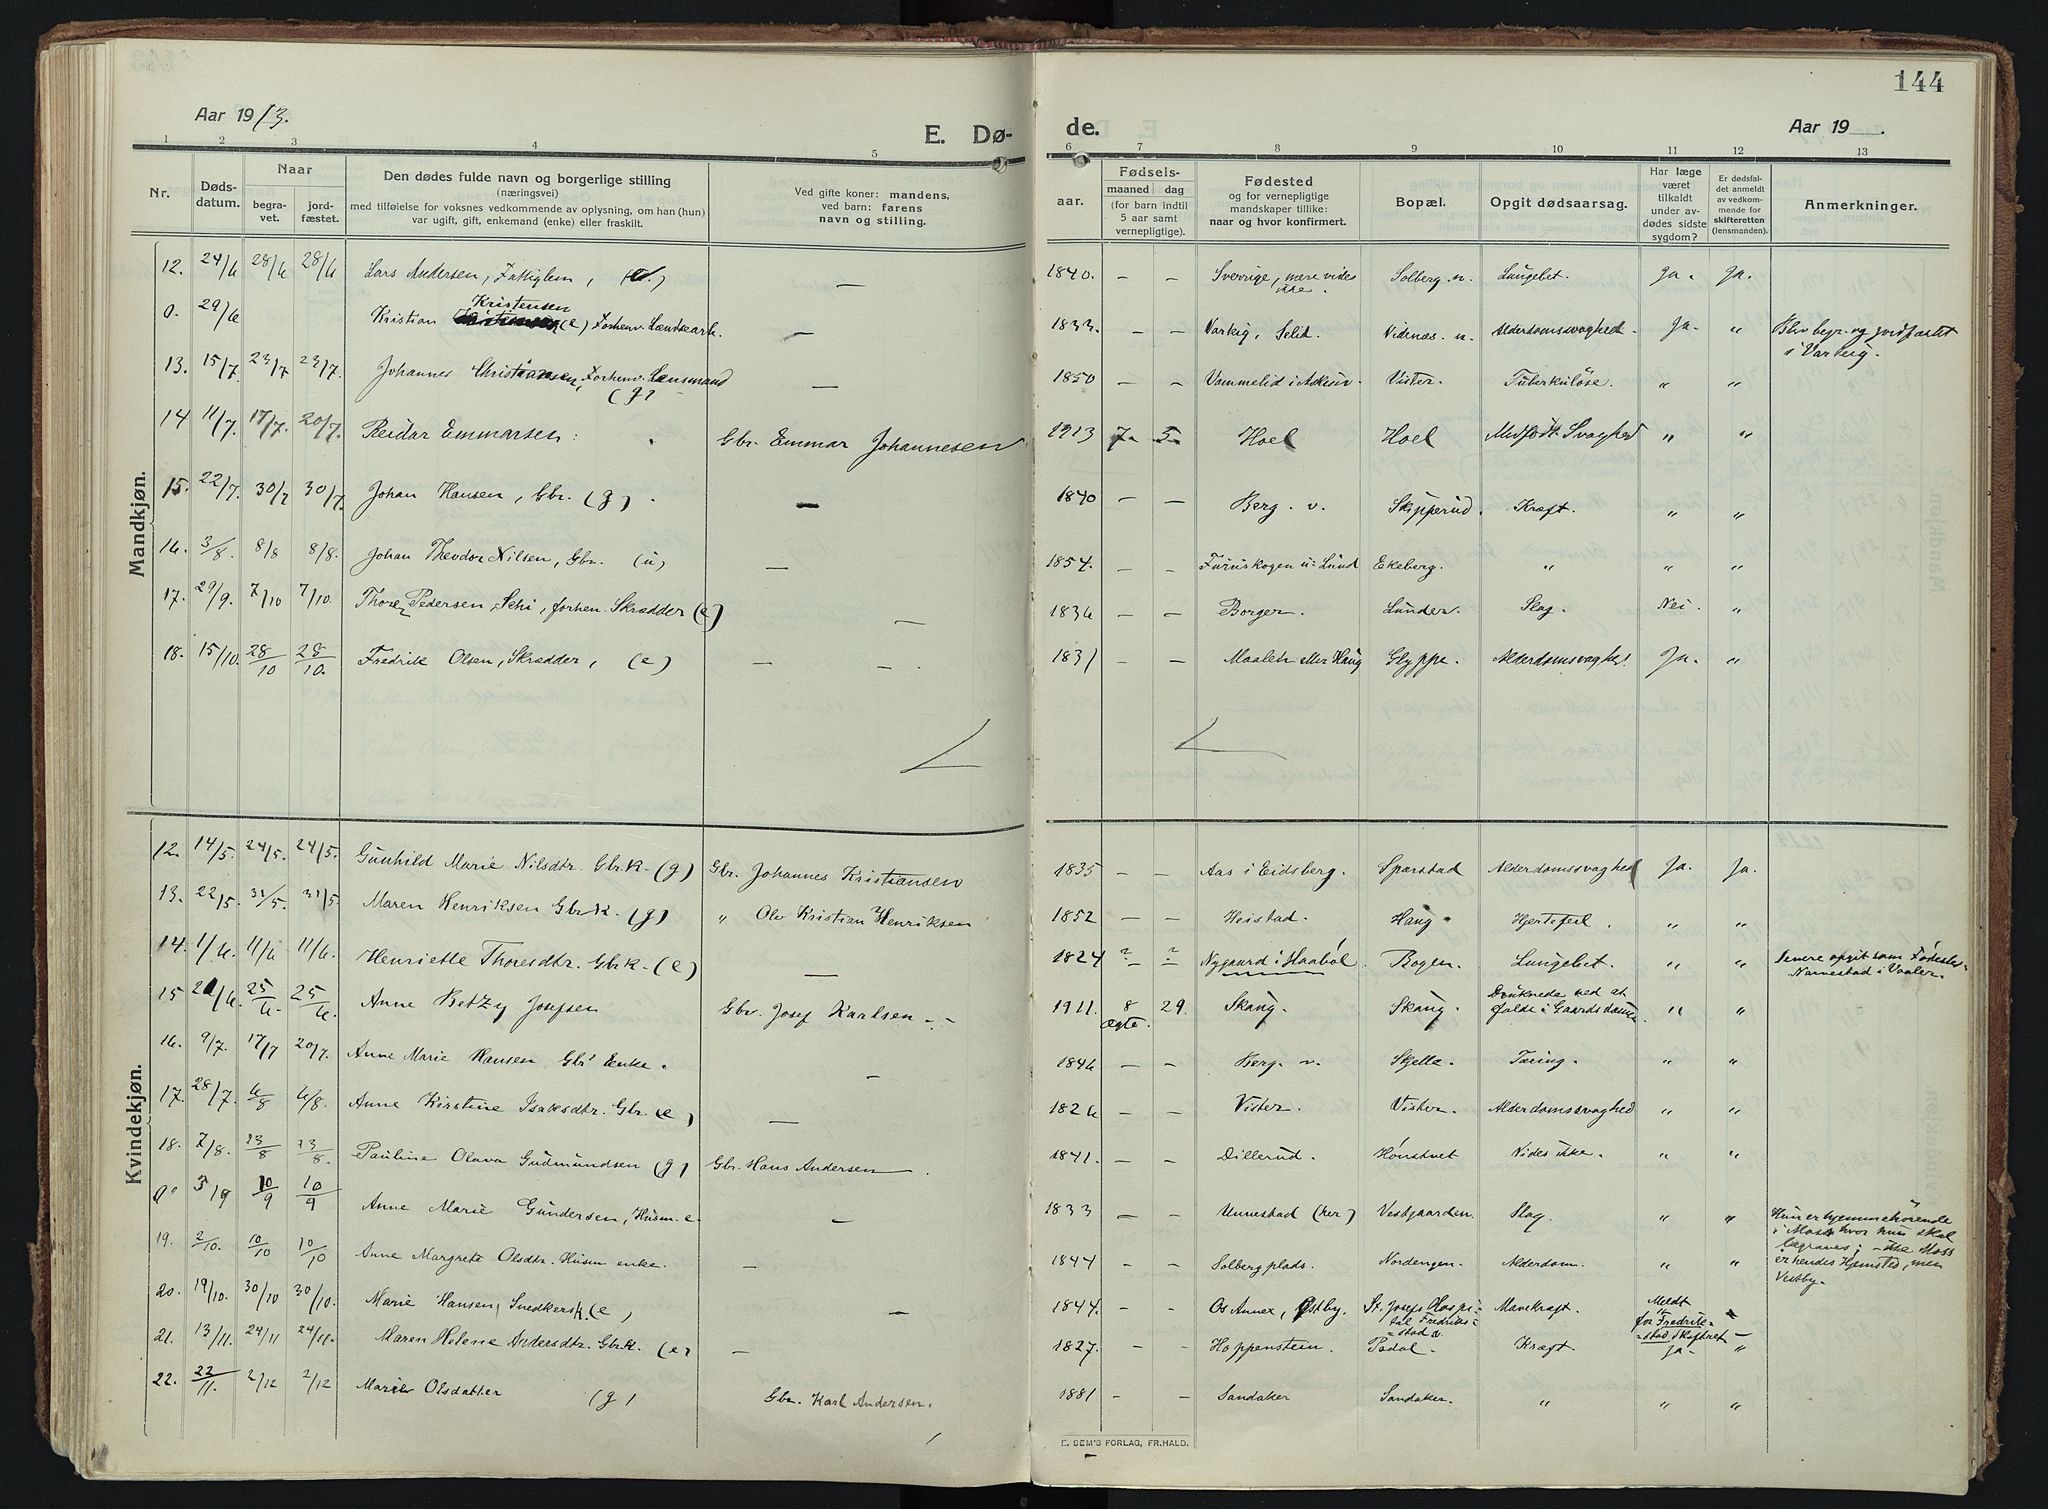 144
Aar 1913.
E. Dø-
de.
Aar 19 .
1 2 3 4 5 6 7 8 9 10 11 12 13
Nr.
Døds-
datum.
Naar
begra-
vet.
jord-
fæstet.
Den dødes fulde navn og borgerlige stilling
(næringsvei)
med tilføielse for voksnes vedkommende av oplysning, om han (hun)
var ugift, gift, enkemand (enke) eller fraskilt.
Ved gifte koner: mandens,
ved barn: farens
navn og stilling.
Fødsels-
aar.
maaned dag
(for barn indtil
5 aar samt
vernepligtige).
Fødested
og for vernepligtige
mandskaper tillike:
naar og hvor konfirmert.
Bopæl.
Opgit dødsaarsag.
Har læge
været
tilkaldt
under av-
dødes sidste
sygdom?
Er dødsfal-
det anmeldt
av vedkom-
mende for
skifteretten
(lensmanden).
Anmerkninger.
Mandkjøn.
12. 24/6 28/6 28/6 Lars Andersen, Fattiglem, — 1840. — — Sverrige, mere vides ikke. Solberg. n. Lungebet. Ja. Ja.
0. 29/6 Kristian Kristensen (e) Forhenv. — 1833. — — Varteig, Alderdomssvaghed. Ja. " Blev begr. og jordfæstet
i Varteig.
13. 15/7. 23/7 23/7. Johannes Christiansen, Forhenv. Lensmand (g) — 1850 — — Vister. Tuberkuløse. " "
14 11/7. 17/7. 20/7. Reidar Emmarsen. Gbr. Emmar Johannesen 1913 7 5 Hoel Hoel Medfødt Svaghed " "
15. 22/7. 30/7 30/7. Johan Hansen, Gbr. (g). — 1840 — — Berg. v. Skipperud. Kræft. " "
16. 3/8. 8/8 8/8. Johan Theodor Nilsen, Gbr. (u) — 1854. — — Furuskogen u. Lund Ekeberg. " " "
17. 29/9. 7/10 7/10. Thore Pedersen Sehi, forhen. Skrædder (e) — 1836 — — Borger. Lunder. Slag. Nei. "
18. 15/10. 28/10 28/10. Fredrik Olsen, Skrædder, (e) — — 1831 — — Maalen eller Haug Glyppe. Alderdomssvaghed. Ja. "
Kvindekjøn.
12. 14/5. 24/5. 24/5. Gunhild Marie Nilsdtr. Gbr.k. (g) Gbr. Johannes Kristiansen 1835 — — Aas i Eidsberg. Sparstad Alderdomssvaghed Ja. Ja.
13. 22/5. 31/5. 31/5. Maren Henriksen Gbr.k. (g) " Olv Kristian Henriksen 1852 — — Heistad. Haug. Hjertefeil. " "
14. 1/6. 11/6 11/6. Henriette Thoresdtr. Gbr.k. (e) — 1824 ? ? Nygaard i Haabøl Bogen. Lungebet. " " Senere opgit som Fødested
Narnestad i Vaaler.
15 21/6. 25/6. 25/6. Anne Betzy Josefsen Gbr. Josef Karlsen — 1911. 8 29. ægte. Skaug. Skaug. Druknede ved at
falde i Gaardsdammen " "
16. 9/7. 17/7 20/7. Anne Marie Hansen Gbr. Enke. — 1846 — — Berg. v. Skjelle. Tæring. " "
17. 28/7. 6/8 6/8. Anne Kirstine Isaksdtr. Gbr. (e) — 1826 — — Vister. Vister. Alderdomssvaghed " "
18. 7/8. 13/8 13/8. Pauline Olava Gudmundsen (g) Gbr. Hans Andersen. 1841. — — Dillerud. Hønstvet Vides ikke. " "
0. 3/9 10/9 10/9 Anne Marie Gundersen, Husm. e. — 1833 — — Unnestad (her) Vestgaarden. Slag. " " Hun er hjemmehørende
i Moss hvor hun skal
begraves; — ikke Moss
er hendes Hjemsted, men
Vestby.
19. 2/10. 10/10 10/10 Anne Margrete Olsdtr. Husm. enke. — 1844 — — Solbergplads. Nordengen. Alderdom. " "
20. 19/10. 30/10 30/10. Marie Hansen, Snedkersk. (e) — 1844. — — Os Annex, Østby. St. Josefs Hospi-
tal Fredrik-
stad. Mavekræft. Meldt
for Fredrik-
stad Skifteret "
21. 13/11. 24/11 24/11. Maren Helene Andersdtr. Gbr.k. (e) — 1827. — — Hoppenstein. Padal. Kræft. Ja. "
22. 22/11. 2/12 2/12 Marie Olsdatter (g) Gbr. Karl Andersen. 1881 — — Sandaker Sandaker. " " "
E. SEM'S FORLAG, FR.HALD.